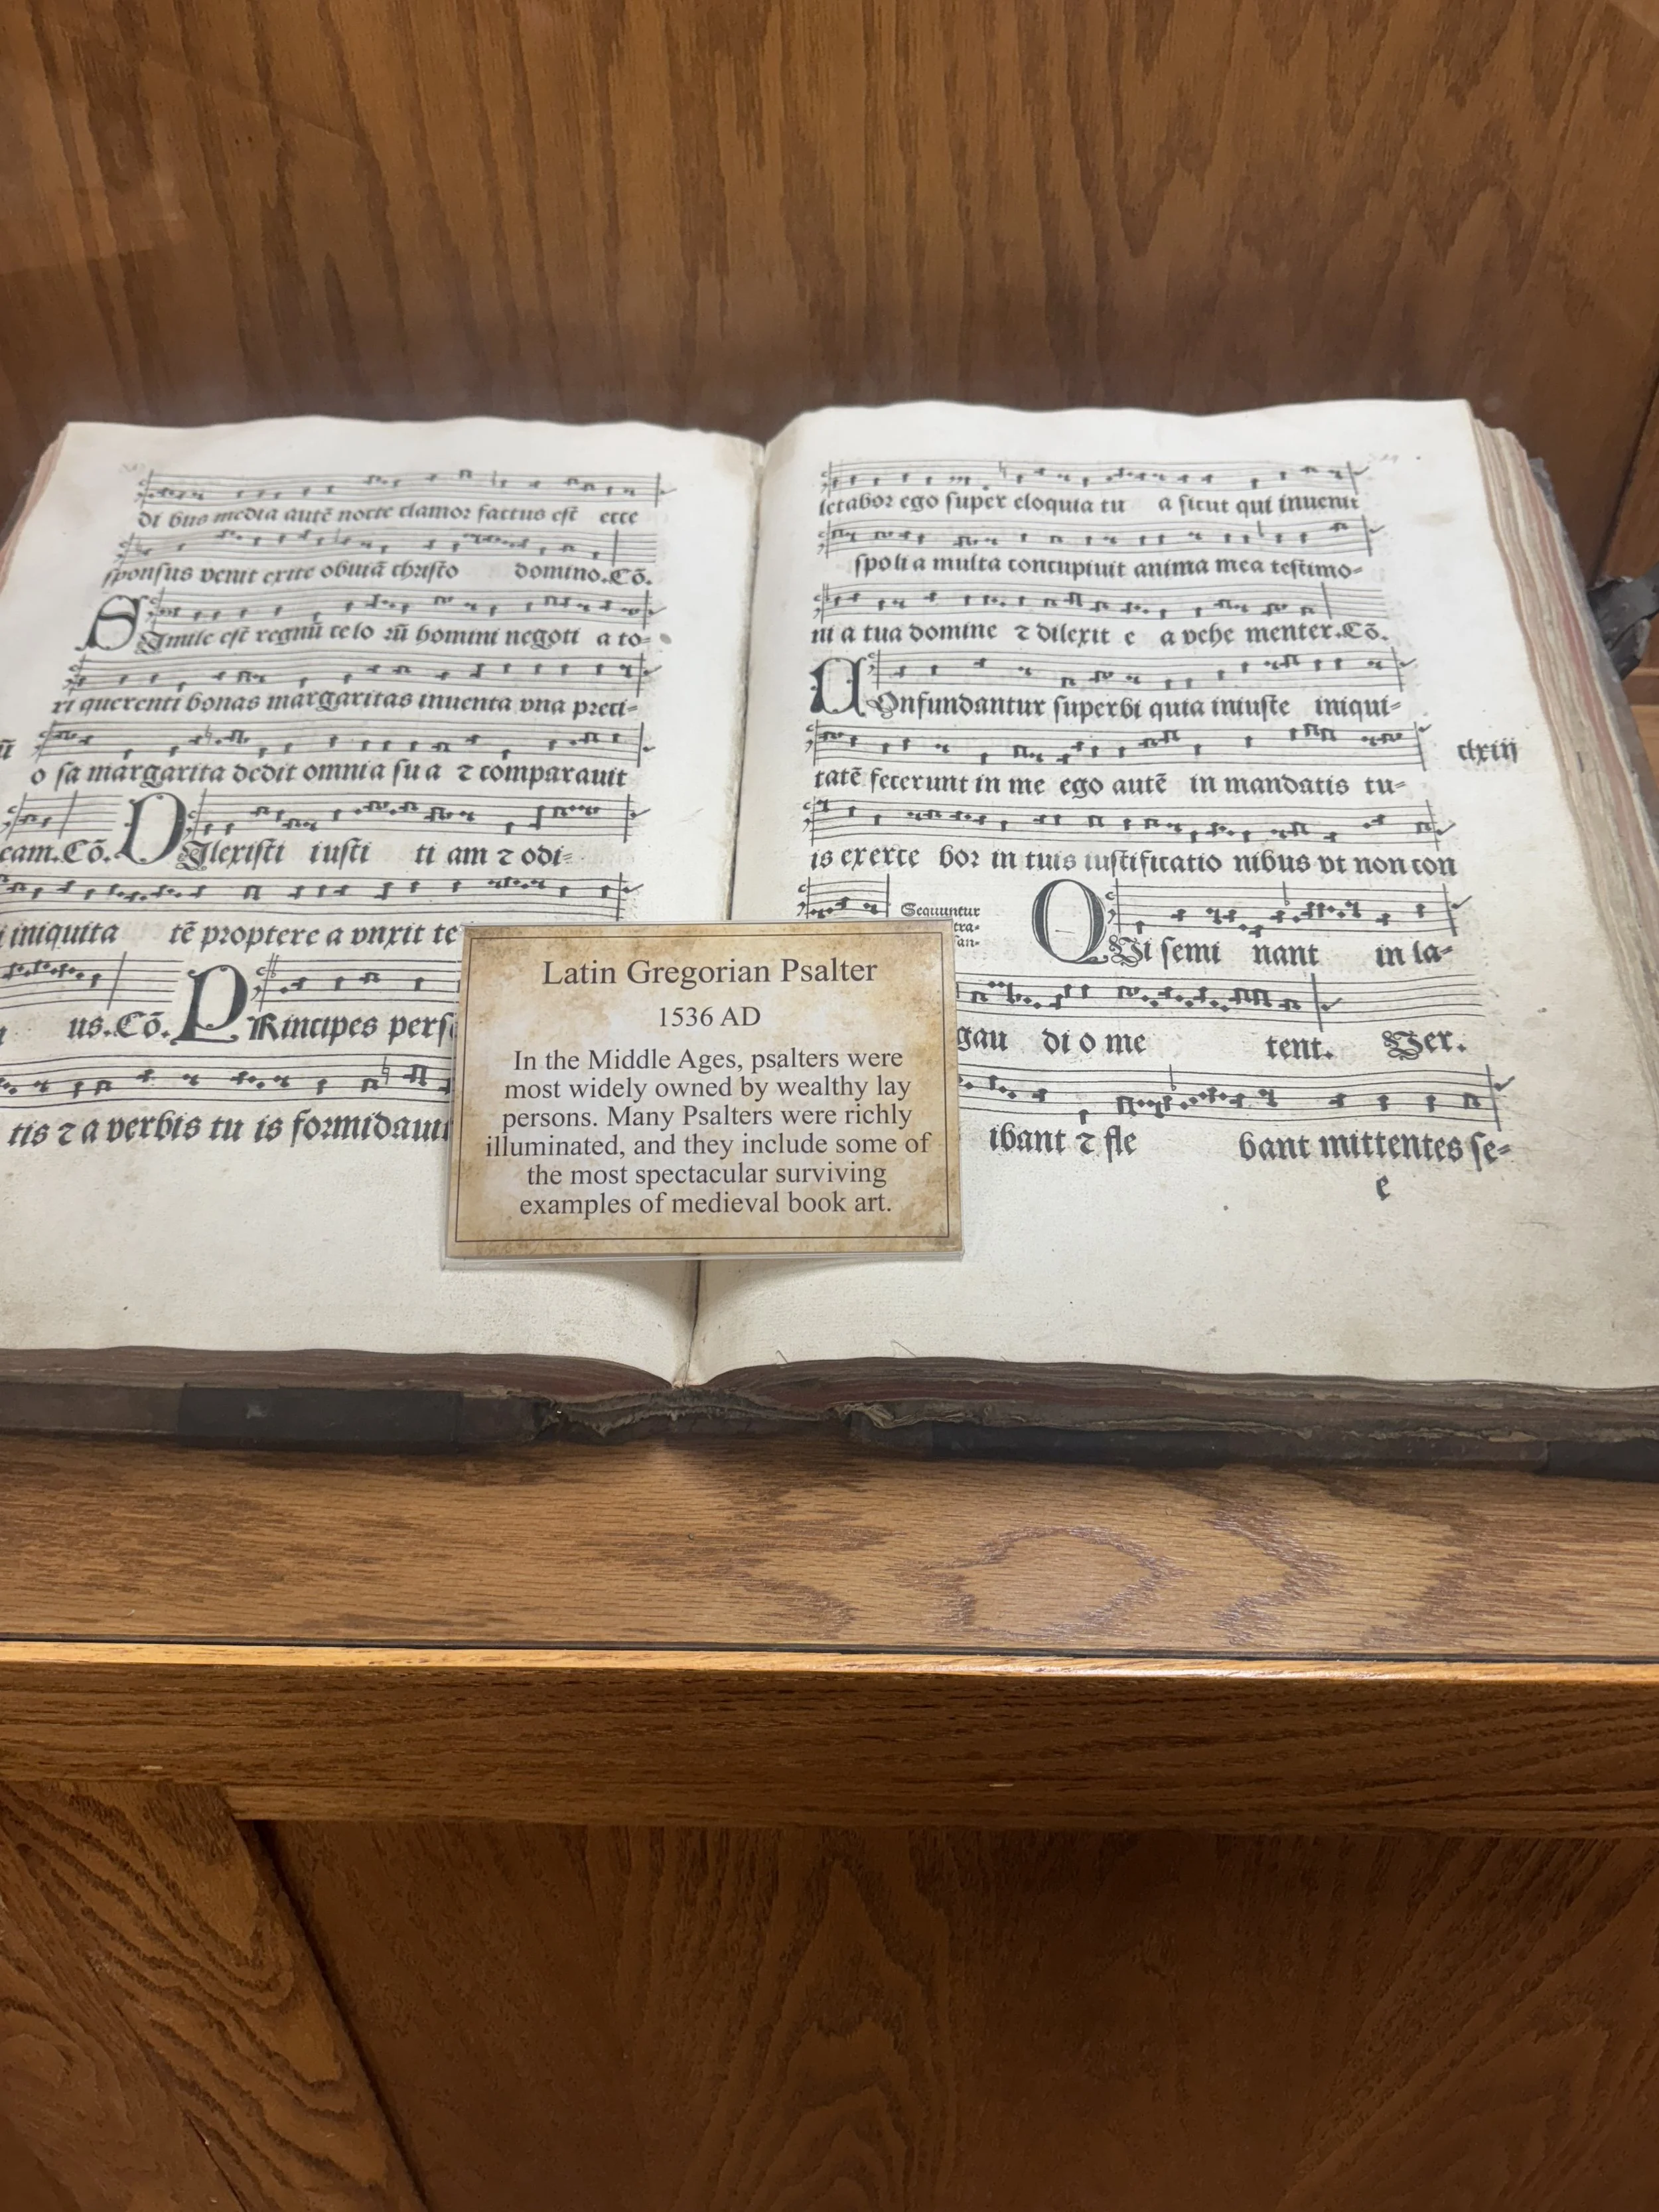 di bus media autē nocte clamor factus est ecce
sponsus venit exite obuiā christo domino.Cō.
SImile est regnū celo rū homini negoti a to-
ri querenti bonas margaritas inuenta vna preci-
o sa margarita dedit omnia su a ⁊ comparauit
eam.Cō. DIlexisti iusti ti am ⁊ odi-
iniquita tē proptere a vnxit te
us.Cō. PRincipes pers
tis ⁊ a verbis tu is formidauit
letabor ego super eloquia tu a sicut qui inuenit
spoli a multa concupiuit anima mea testimo-
ni a tua domine ⁊ dilexit e a vehe menter.Cō.
COnfundantur superbi quia iniuste iniqui-
tatē fecerunt in me ego autē in mandatis tu-
clxiij
is exerce bor in tuis iustificatio nibus vt non con
Sequuntur
tra-
san-
QVi semi nant in la-
gau di o me tent. Ver.
ibant ⁊ fle bant mittentes se-
e
Latin Gregorian Psalter
1536 AD
In the Middle Ages, psalters were
most widely owned by wealthy lay
persons. Many Psalters were richly
illuminated, and they include some of
the most spectacular surviving
examples of medieval book art.